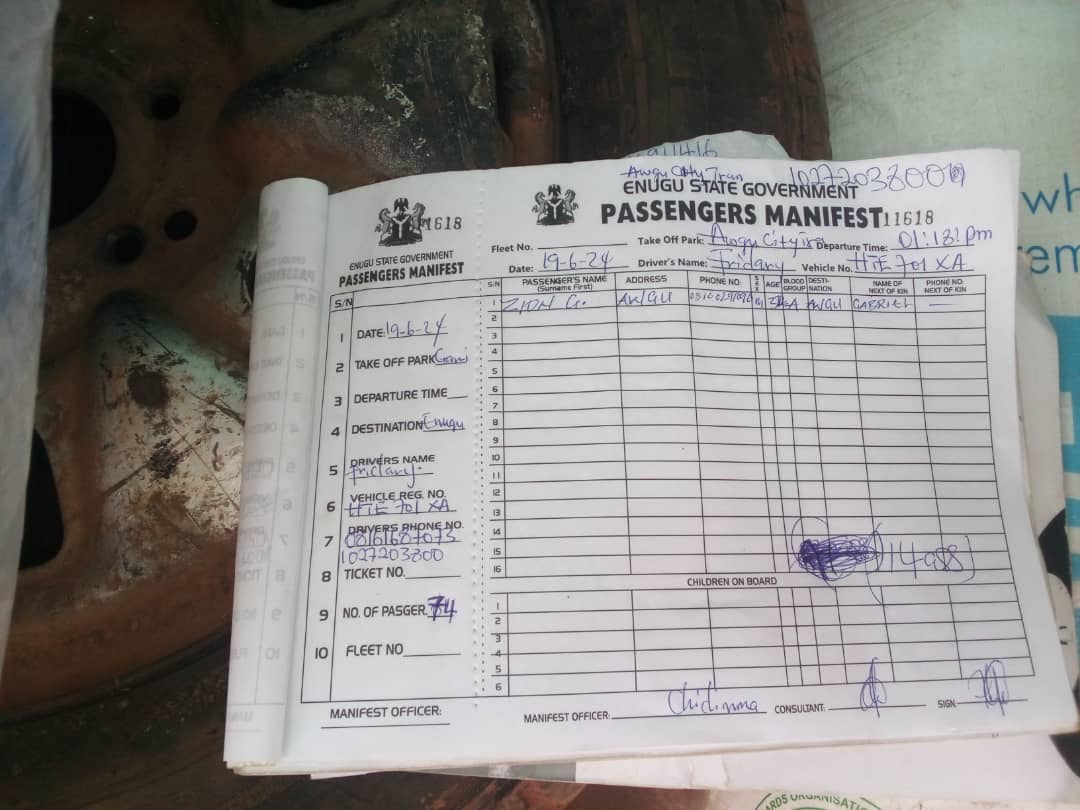 11618
ENUGU STATE GOVERNMENT
PASSENGERS MANIFEST
S/N
1 DATE 19-6-24
2 TAKE OFF PARK
3 DEPARTURE TIME
4 DESTINATION Enugu
5 DRIVERS NAME
Friday
6 VEHICLE REG. NO.
701 XA
7 DRIVERS PHONE NO.
08161687073
1027203800
8 TICKET NO.
9 NO. OF PASGER.
10 FLEET NO
MANIFEST OFFICER:
Awgu City Tran
ENUGU STATE GOVERNMENT
PASSENGERS MANIFEST 11618
Fleet No. Take Off Park: Awgu City Departure Time: 01:18 pm
Date: 19-6-24 Driver's Name: Friday Vehicle No. 701 XA
S/N PASSENGER'S NAME (Surname First) ADDRESS PHONE NO: SEX AGE BLOOD GROUP DESTI-NATION NAME OF NEXT OF KIN PHONE NO: NEXT OF KIN
1 ZION G. AWGU M AWGU GABRIEL —
2
3
4
5
6
7
8
9
10
11
12
13
14
15
16
CHILDREN ON BOARD
1
2
3
4
5
6
MANIFEST OFFICER: Chidinma CONSULTANT: SIGN
ARDS ORGANISATI
wh
em